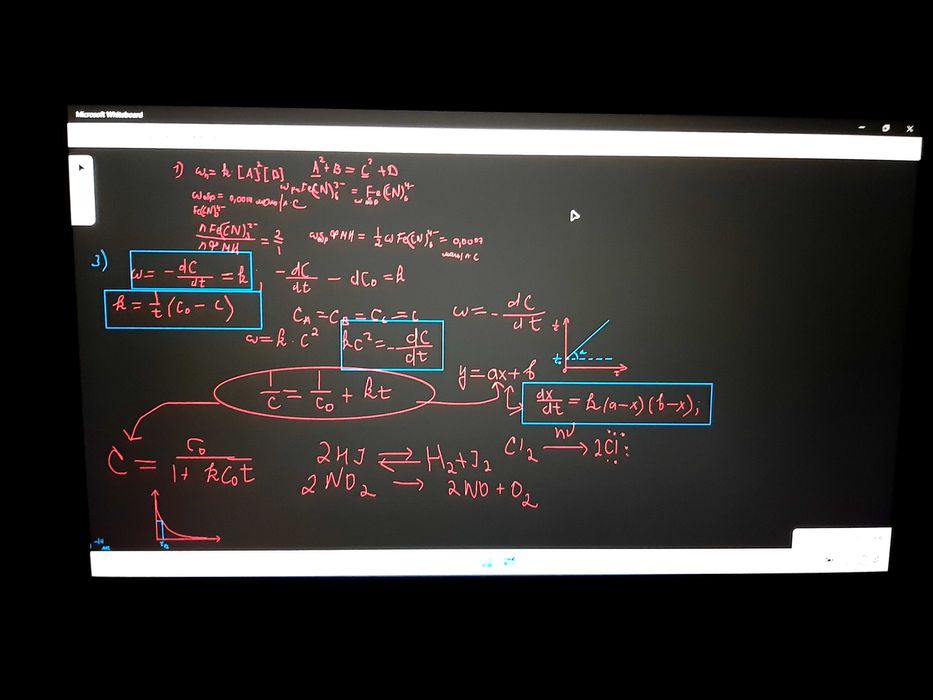 Microsoft Whiteboard
1) ωₙ = k [A]²[B]   A² + B = C² + D
ω обр = 0,0014 моль/л·с   Fe(CN)₆³⁻ = Fe(CN)₆⁴⁻
Fe(CN)₆⁴⁻   ω обр
n Fe(CN)₆ / n = 2/1   ω обр = 1/2 ω Fe(CN)₆⁴⁻ = 0,0007
моль/л·с
3) ω = - dC/dt = k ; - dC/dt - dC₀ = k
k = 1/t (C₀ - C)
C_A = C_B = C_C = C   ω = - dC/dt
ω = k · C²   kC² = - dC/dt
1/C = 1/C₀ + kt   y = ax + b
dx/dt = k(a-x)(b-x);
C = C₀ / 1 + kC₀t
2HJ ⇄ H₂ + J₂   Cl₂ →hν 2Cl
2NO₂ → 2NO + O₂